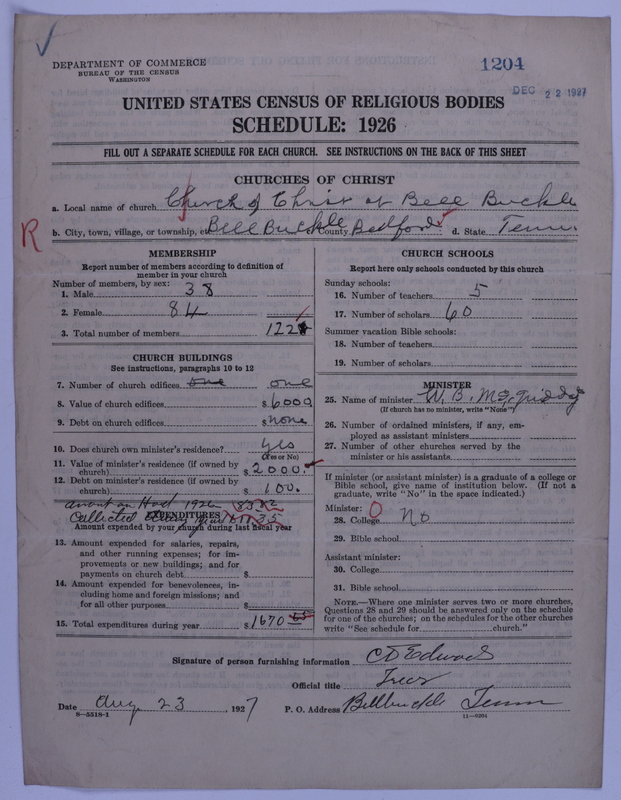 DEPARTMENT OF COMMERCE
BUREAU OF THE CENSUS
WASHINGTON
1204
DEC 22 1927
UNITED STATES CENSUS OF RELIGIOUS BODIES
SCHEDULE: 1926
FILL OUT A SEPARATE SCHEDULE FOR EACH CHURCH. SEE INSTRUCTIONS ON THE BACK OF THIS SHEET
CHURCHES OF CHRIST
a. Local name of church Church of Christ at Bell Buckle
R
b. City, town, village, or township, etc. Bell Buckle County Bedford d. State Tenn
MEMBERSHIP
Report number of members according to definition of
member in your church
Number of members, by sex:
1. Male 38
2. Female 84
3. Total number of members 122
CHURCH BUILDINGS
See instructions, paragraphs 10 to 12
7. Number of church edifices one one
8. Value of church edifices $ 6000
9. Debt on church edifices $ none
10. Does church own minister's residence? yes
(Yes or No)
11. Value of minister's residence (if owned by
church) $ 2000.
12. Debt on minister's residence (if owned by
church) $ 100.
amount on Hand 1926
Collected
EXPENDITURES
Amount expended by your church during last fiscal year
13. Amount expended for salaries, repairs,
and other running expenses; for im-
provements or new buildings; and for
payments on church debt $
14. Amount expended for benevolences, in-
cluding home and foreign missions; and
for all other purposes $
15. Total expenditures during year $ 1670
CHURCH SCHOOLS
Report here only schools conducted by this church
Sunday schools:
16. Number of teachers 5
17. Number of scholars 60
Summer vacation Bible schools:
18. Number of teachers
19. Number of scholars
MINISTER
25. Name of minister W. B. McQuiddy
(If church has no minister, write "None")
26. Number of ordained ministers, if any, em-
ployed as assistant ministers
27. Number of other churches served by the
minister or his assistants
If minister (or assistant minister) is a graduate of a college or
Bible school, give name of institution below. (If not a
graduate, write "No" in the space indicated.)
Minister: O
28. College No
29. Bible school
Assistant minister:
30. College
31. Bible school
NOTE.—Where one minister serves two or more churches,
Questions 28 and 29 should be answered only on the schedule
for one of the churches; on the schedules for the other churches
write "See schedule for church."
Signature of person furnishing information C D Edwards
Official title Treas
Date Aug 23, 1927 P. O. Address Bellbuckle Tenn
8-5518-1 11-9204